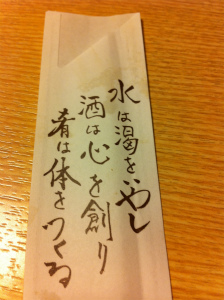 水は渇をいやし
酒は心を創り
肴は体をつくる